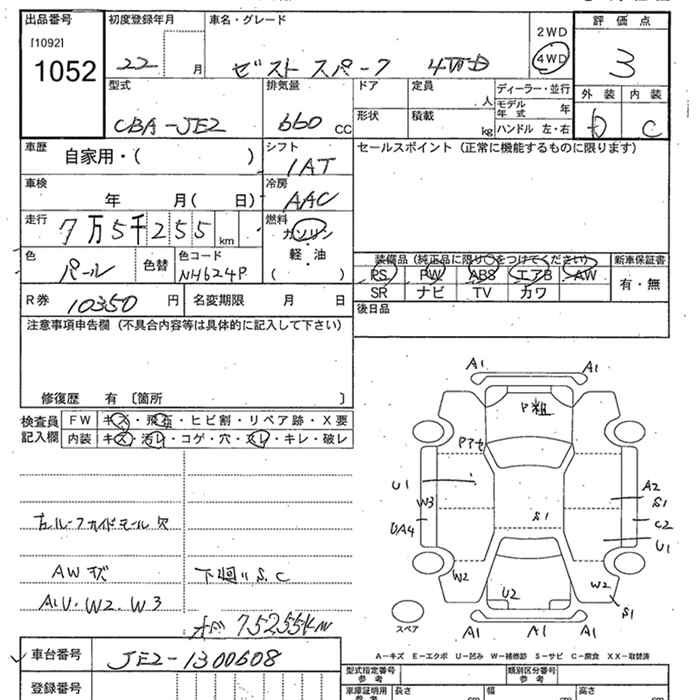 出品番号
[1092]
1052
初度登録年月
22 月
車名・グレード
ゼスト スパーク 4WD
2WD
4WD
評価点
3
外装 内装
D C
型式
CBA-JE2
排気量
660 CC
ドア
形状
定員
人
積載
kg
ディーラー・並行
モデル年式 年
ハンドル 左・右
車歴
自家用・( )
シフト
1AT
車検
年 月( 日)
冷房
AAC
走行
7万5千255km
燃料
ガソリン
・
軽・油
( )
色
パール
色替
色コード
NH624P
R券
10350円
名変期限 月 日
セールスポイント (正常に機能するものに限ります)
装備品 (純正品に限り○をつけてください)
PS PW ABS エアB AW
SR ナビ TV カワ
新車保証書
有・無
後日品
注意事項申告欄 (不具合内容等は具体的に記入して下さい)
修復歴 有 〔箇所 〕
検査員記入欄
FW キズ・飛石・ヒビ割・リペア跡・X要
内装 キズ・汚レ・コゲ・穴・スレ・キレ・破レ
右ルーフサイドモール欠
AWキズ
下廻リS.C
A1U.W2.W3
メーター75255km
車台番号
JE2-1300608
登録番号
A1
A1
P粗
Pアセ
U1
W3
UA4
A2
S1
C2
U1
S1
W2
U2
W2
S1
A1
A1
A1
スペア
A-キズ E-エクボ U-凹み W-補修跡 S-サビ C-腐食 XX-取替済
型式指定番号
参考
類別区分番号
参考
車庫証明用
参考
長さ
cm
幅
cm
高さ
cm